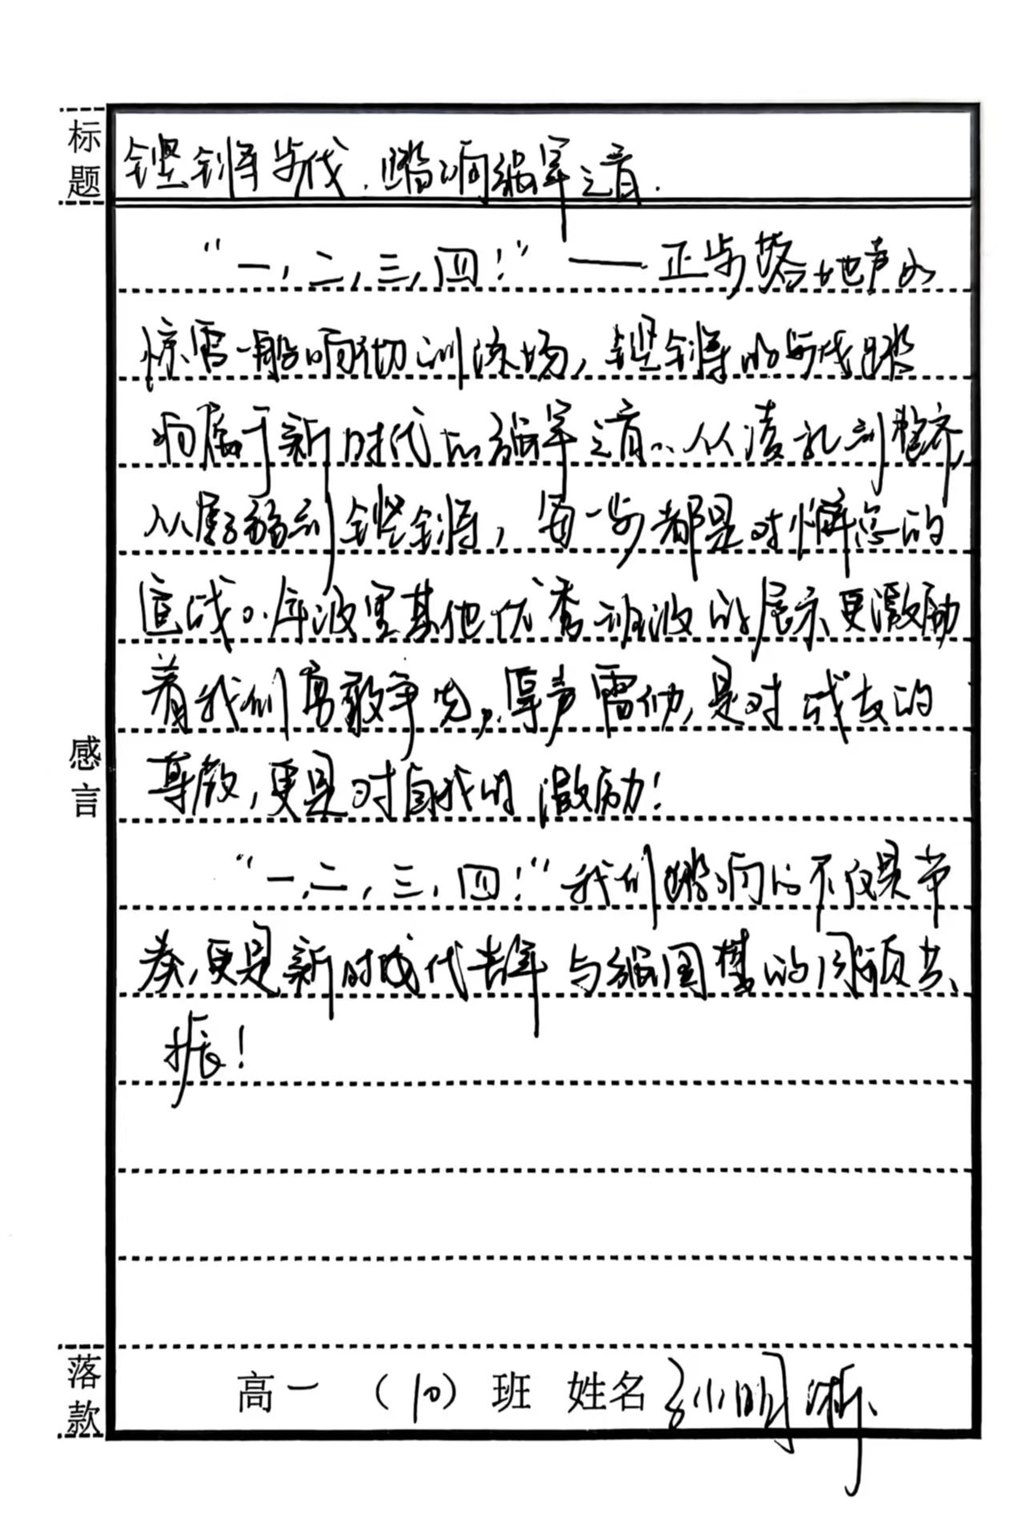 标题
铿锵步伐，踏响强军之音.
“一，二，三，四！”——正步落地声如
惊雷一般响彻训练场，铿锵的步伐踏
响属于新时代的强军之音。从凌乱到整齐，
从孱弱到铿锵，每一步都是对懈怠的
宣战。年级里其他优秀班级的展示更激励
着我们勇敢争先，掌声雷动，是对战友的
尊敬，更是对自我的激励！
“一，二，三，四！”我们踏响的不仅是节
奏，更是新时代青年与强国梦的同频共
振！
感言
落款
高一（10）班 姓名